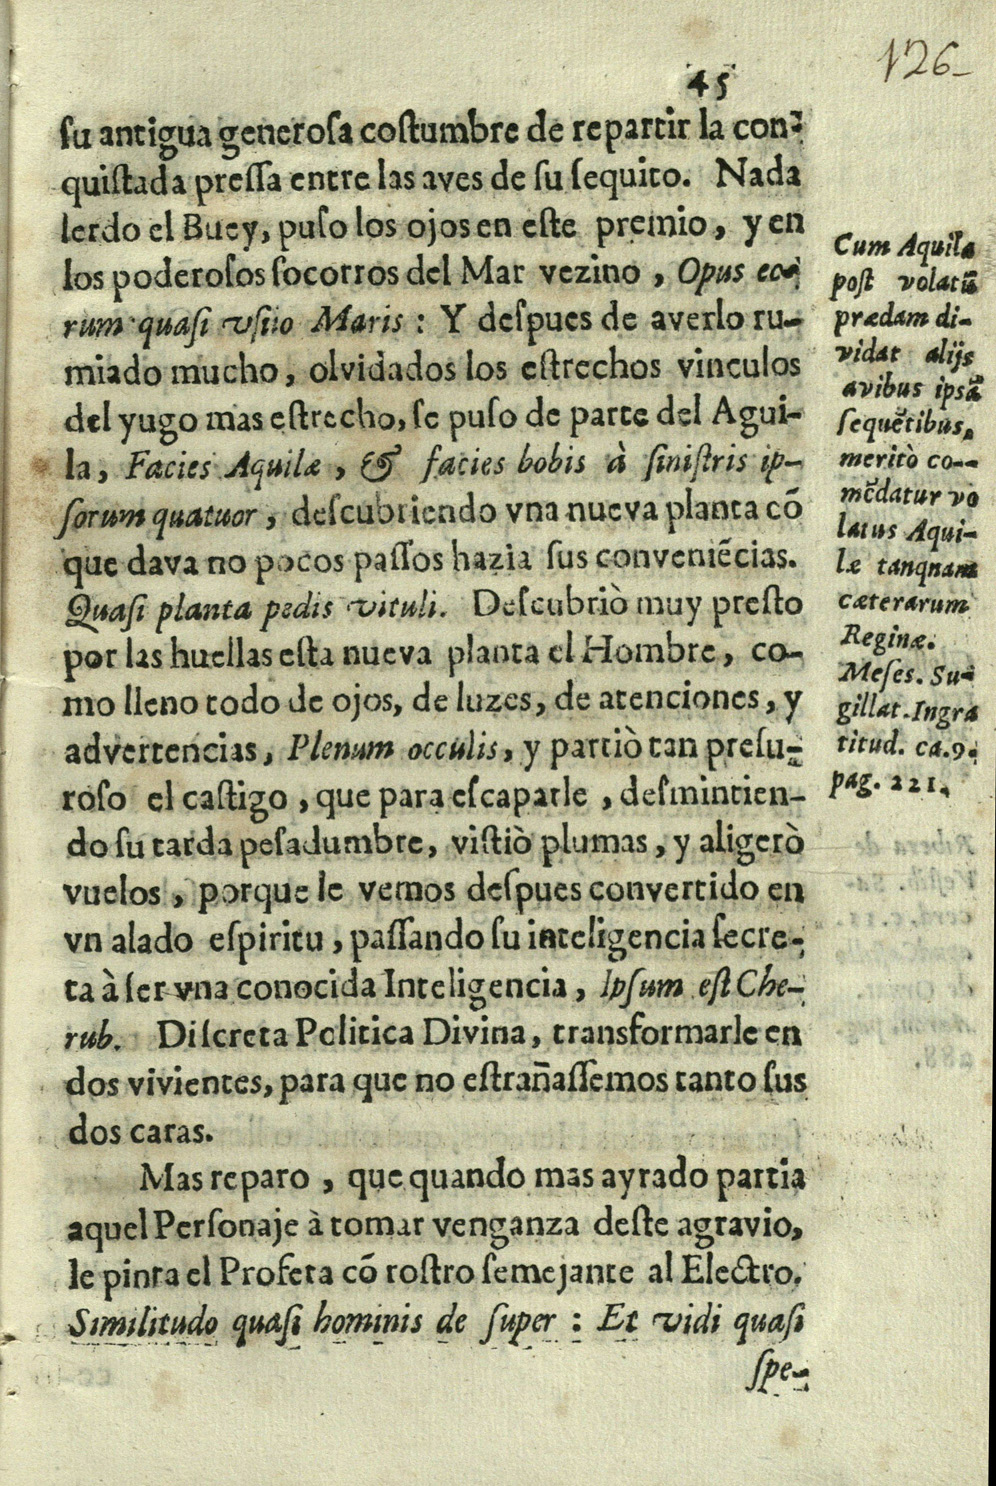 126
45
su antigua generosa costumbre de repartir la con-
quistada pressa entre las aves de su sequito. Nada
lerdo el Buey, puso los ojos en este premio, y en
los poderosos socorros del Mar vezino, Opus eo-
rum quasi vsuo Maris: Y despues de averlo ru-
miado mucho, olvidados los estrechos vinculos
del yugo mas estrecho, se puso de parte del Agui-
la, Facies Aquilæ, & facies bobis à sinistris ip-
sorum quatuor, descubriendo vna nueva planta cõ
que dava no pocos passos hazia sus conveniẽcias.
Quasi planta pedis vituli. Descubriò muy presto
por las huellas esta nueva planta el Hombre, co-
mo lleno todo de ojos, de luzes, de atenciones, y
advertencias, Plenum occulis, y partiò tan presu-
roso el castigo, que para escaparle, desmintien-
do su tarda pesadumbre, vistiò plumas, y aligerò
vuelos, porque le vemos despues convertido en
vn alado espiritu, passando su inteligencia secre-
ta à ser vna conocida Inteligencia, Ipsum est Che-
rub. Discreta Politica Divina, transformarle en
dos vivientes, para que no estrañassemos tanto sus
dos caras.
Mas reparo, que quando mas ayrado partia
aquel Personaje à tomar venganza deste agravio,
le pinta el Profeta cõ rostro semejante al Electro.
Similitudo quasi hominis de super: Et vidi quasi
spe-
Cum Aquila
post volatũ
prædam di-
vidat alijs
avibus ipsã
sequẽtibus,
meritò co-
mẽdatur vo
latus Aqui-
læ tanqnam
cæterarum
Reginæ.
Meses. Su-
gillat. Ingra
titud. ca. 9.
pag. 221.